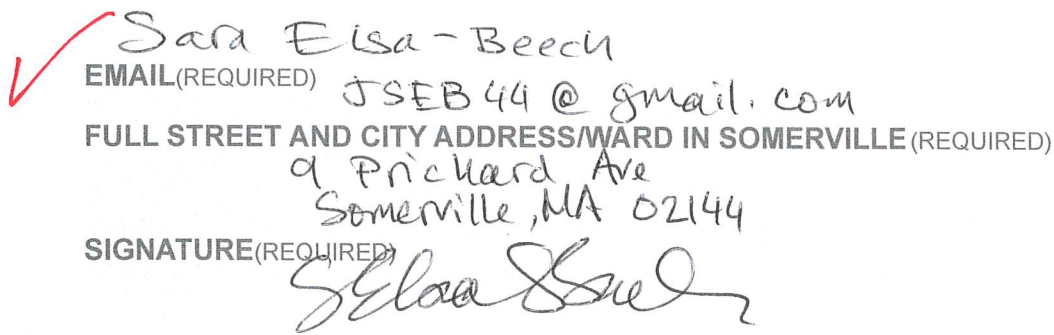 Sara Eisa-Beech
EMAIL(REQUIRED) JSEB44@gmail.com
FULL STREET AND CITY ADDRESS/WARD IN SOMERVILLE(REQUIRED)
9 Prichard Ave
Somerville, MA 02144
SIGNATURE(REQUIRED)